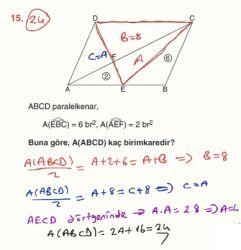 15. 24
D
C
B=8
C=A
F
A
2
6
A
E
B
ABCD paralelkenar,
A(EBC) = 6 br², A(AEF) = 2 br²
Buna göre, A(ABCD) kaç birimkaredir?
A(ABCD)/2 = A+2+6 = A+B ⇒ B=8
A(ABCD)/2 = A+8 = C+8 ⇒ C=A
AECD dörtgeninde → A.A = 2.8 ⇒ A=4
A(ABCD) = 2A+16 = 24